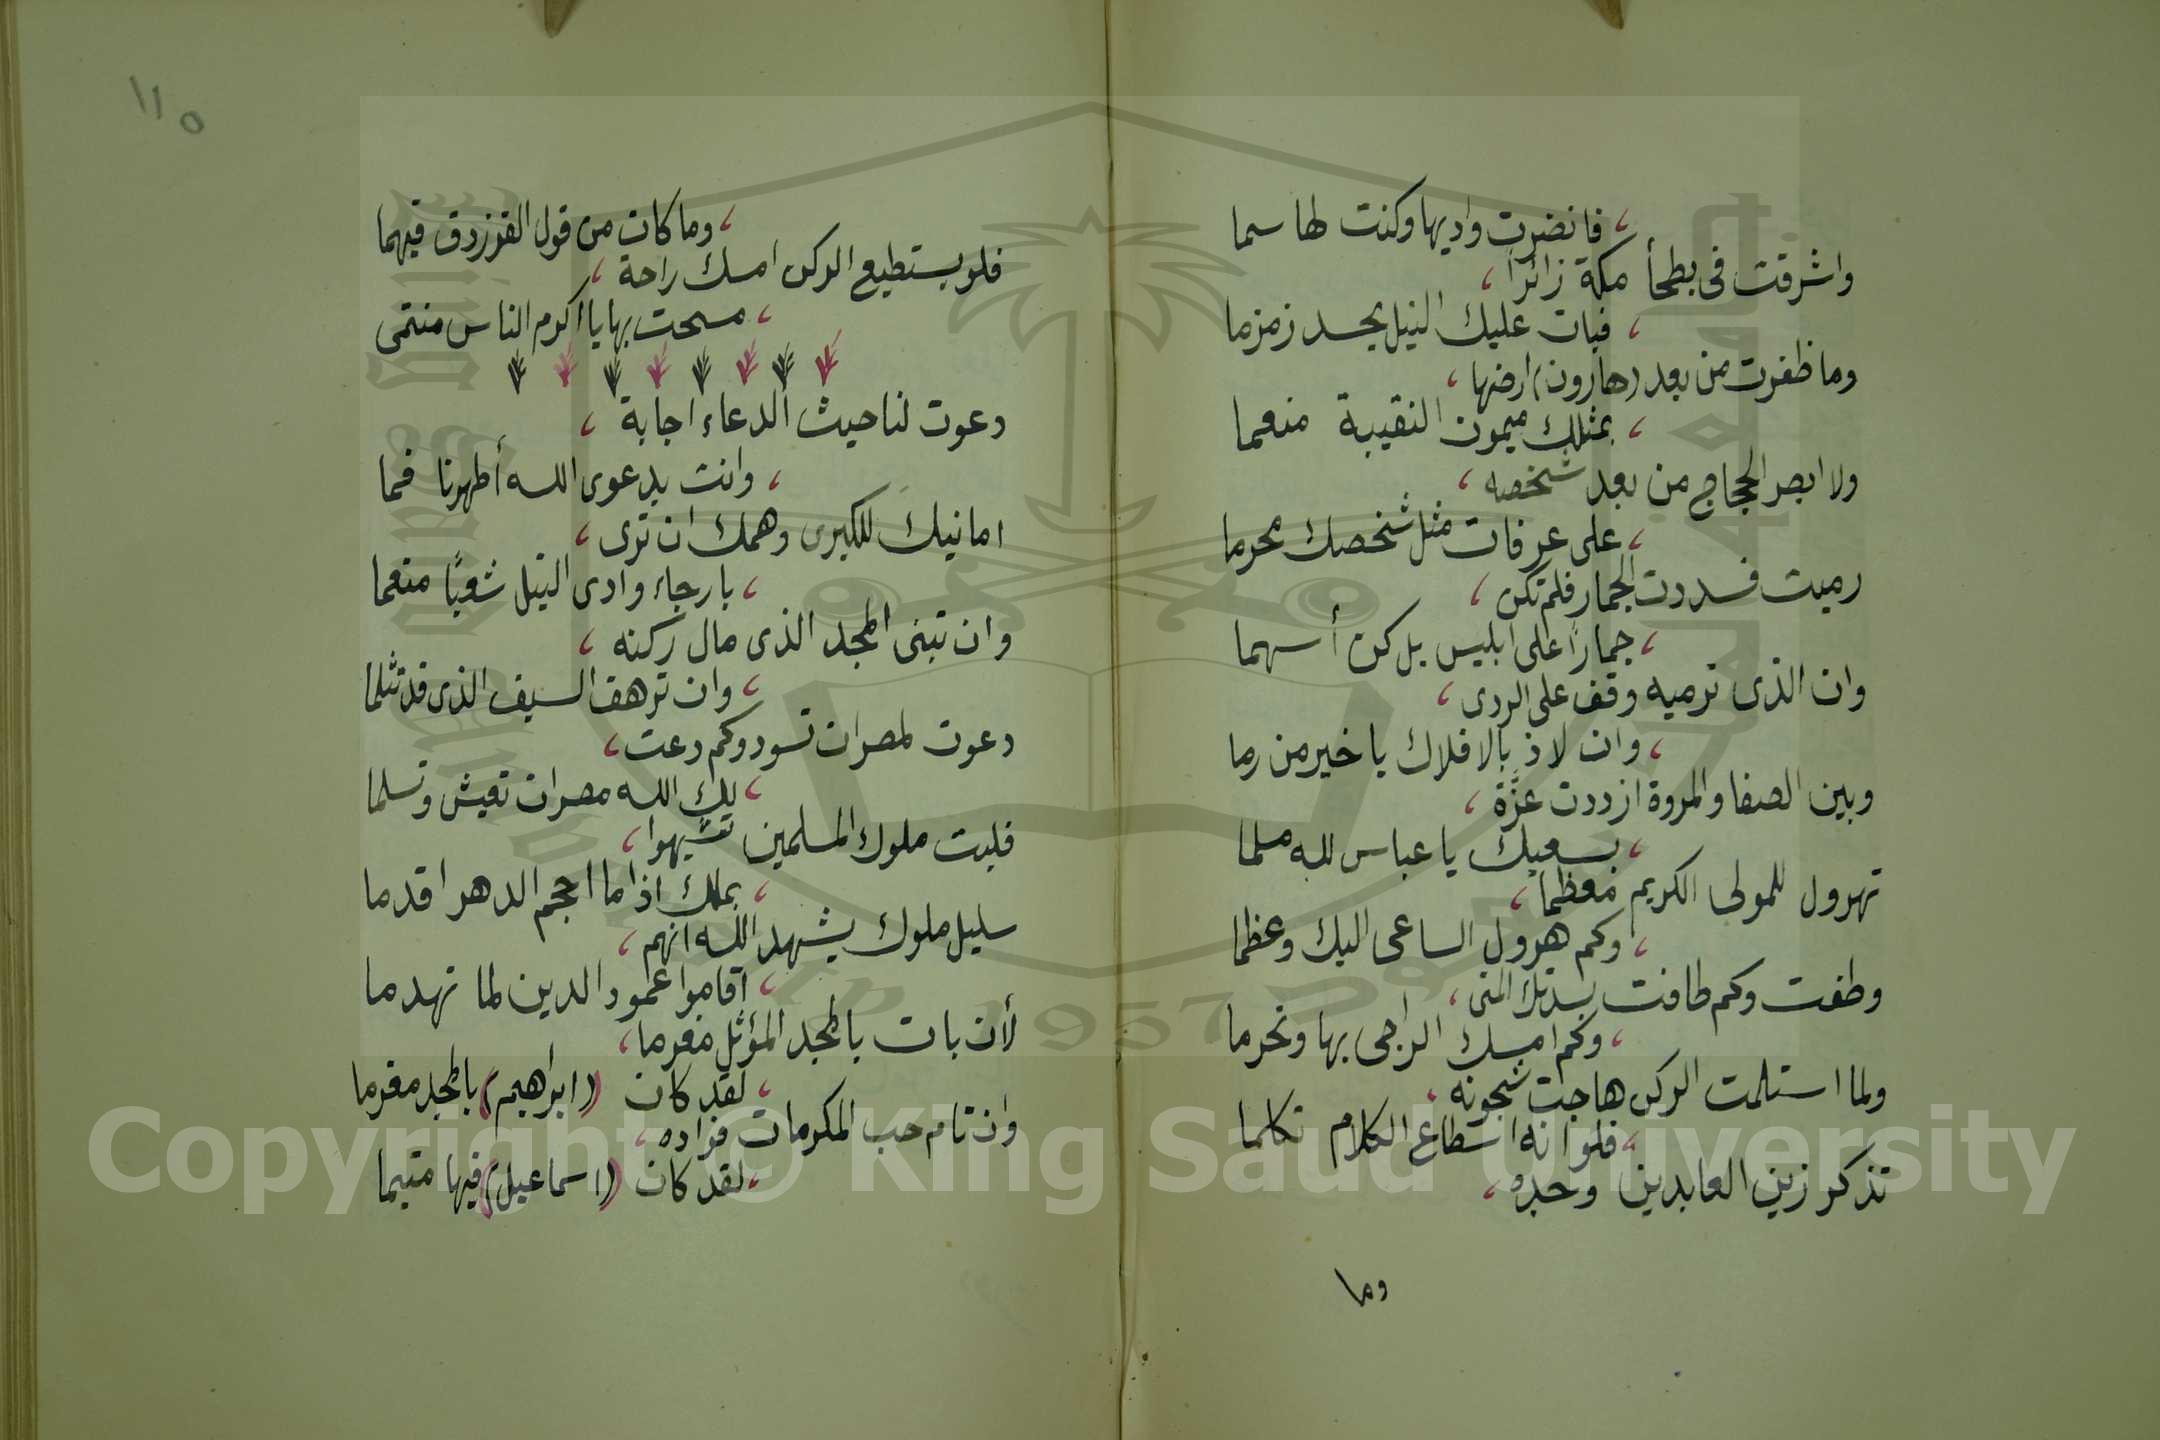 فانضرت واديها وكنت لها سما
واشرقت فى بطحأ مكة زائرا
فبات عليك النيل يحسد زمزما
وما ظفرت من بعد (هارون) ارضها
بمثلك ميمون النقيبة منعما
ولا ابصر الحجاج من بعد شخصه
على عرفات مثل شخصك محرما
رميت فسددت الجمار فلم تكن
جمارًا على ابليس بل كن أسهما
وان الذى ترميه وقف على الردى
وان لاذ بالافلاك يا خير من رما
وبين الصفا والمروة ازددت عزّة
بسعيك يا عباس لله مسلما
تهرول للمولى الكريم معظما
وكم هرول الساعى اليك وعظما
وطفت وكم طافت بسدتك المنى
وكم امسك الراجى بها وتحرما
ولما استلمت الركن هاجت شجونه
فلو انه اسطاع الكلام تكلما
تذكر زين العابدين وجده
وما
١١٥
وما كان من قول الفرزدق فيهما
فلو يستطيع الركن امسك راحة
مسحت بها يا اكرم الناس منتمى
دعوت لنا حيث الدعاء اجابة
وانت يدعوى الله أطهرنا فما
امانيك للكبرى وهمك ان ترى
بارجاء وادى النيل شعبًا منعما
وان تبنى المجد الذى مال ركنه
وان ترهف السيف الذى قد تثلما
دعوت لمصر ان تسود وكم دعت
لك الله مصر ان تعيش وتسلما
فليت ملوك المسلمين تشبهوا
بملك اذا ما احجم الدهر اقدما
سليل ملوك يشهد الله انهم
اقاموا عمود الدين لما تهدما
لأن بات بالمجد المؤثل مغرما
لقد كان (ابراهيم) بالمجد مغرما
وان تام حب المكرمات فؤاده
لقد كان (اسماعيل) فيها متيما
Copyright © King Saud University
1957